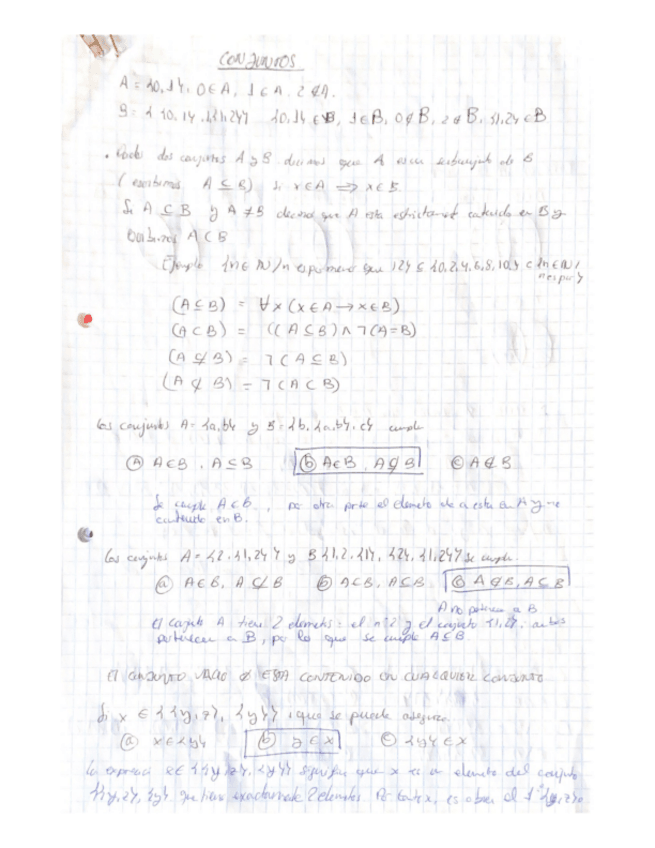 CONJUNTOS
A = {0,1}. 0 ∈ A, 1 ∈ A. 2 ∉ A.
B = { {0,1}, 1, {1,2}} {0,1} ∈ B, 1 ∈ B, 0 ∉ B, 2 ∉ B, {1,2} ∈ B
• Dados dos conjuntos A y B decimos que A es un subconjunto de B
(escribimos A ⊆ B) si x ∈ A ⟹ x ∈ B.
Si A ⊆ B y A ≠ B decimos que A esta estrictamente contenido en B y
Escribimos A ⊂ B
Ejemplo {n ∈ N / n es primo
{0,2,4,6,8,10,} ⊂ {n ∈ N /
n es par}
(A ⊆ B) = ∀x (x ∈ A → x ∈ B)
(A ⊂ B) = ((A ⊆ B) ∧ ¬(A = B)
(A ⊈ B) = ¬(A ⊆ B)
(A ⊄ B) = ¬(A ⊂ B)
Los conjuntos A = {a,b} y B = {b, {a,b}, c} cumple
ⓐ A ∈ B, A ⊆ B ⓑ A ∈ B, A ⊄ B ⓒ A ∉ B
Se cumple A ∈ B., por otra parte el elemento a esta en A y no
contenido en B.
Los conjuntos A = {2, {1,2}} y B {1,2, {1}, {2}, {1,2}} se cumple.
ⓐ A ∈ B, A ⊄ B ⓑ A ∈ B, A ⊆ B ⓒ A ∉ B, A ⊆ B
A no pertenece a B
El conjunto A tiene 2 elementos: el nº 2 y el conjunto {1,2}, ambos
pertenecen a B, por lo que se cumple A ⊆ B.
El CONJUNTO VACIO ∅ ESTA CONTENIDO EN CUALQUIER CONJUNTO
Si x ∈ {{y,z}, {y}} ¿que se puede asegurar
ⓐ x ∈ {y} ⓑ y ∈ x ⓒ {y} ∈ x
La expresió x ∈ {{y,z}, {y}} significa que x es un elemento del conjunto
{{y,z}, {y}} que tiene exactamente 2 elementos Por tanto x, es